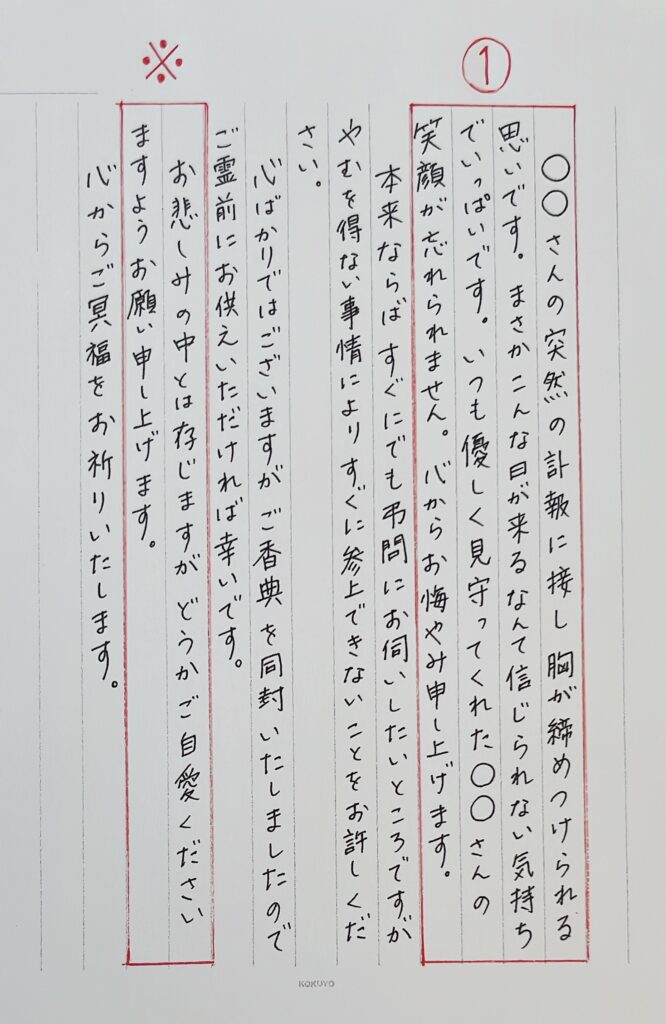 ①
○○さんの突然の訃報に接し 胸が締めつけられる
思いです。まさかこんな日が来るなんて信じられない気持ち
でいっぱいです。いつも優しく見守ってくれた○○さんの
笑顔が忘れられません。心からお悔やみ申し上げます。
本来ならば すぐにでも弔問にお伺いしたいところですが
やむを得ない事情により すぐに参上できないことをお許しくだ
さい。
心ばかりではございますが ご香典を同封いたしましたので
ご霊前にお供えいただければ幸いです。
※
お悲しみの中とは存じますが どうかご自愛ください
ますようお願い申し上げます。
心からご冥福をお祈りいたします。
KOKUYO